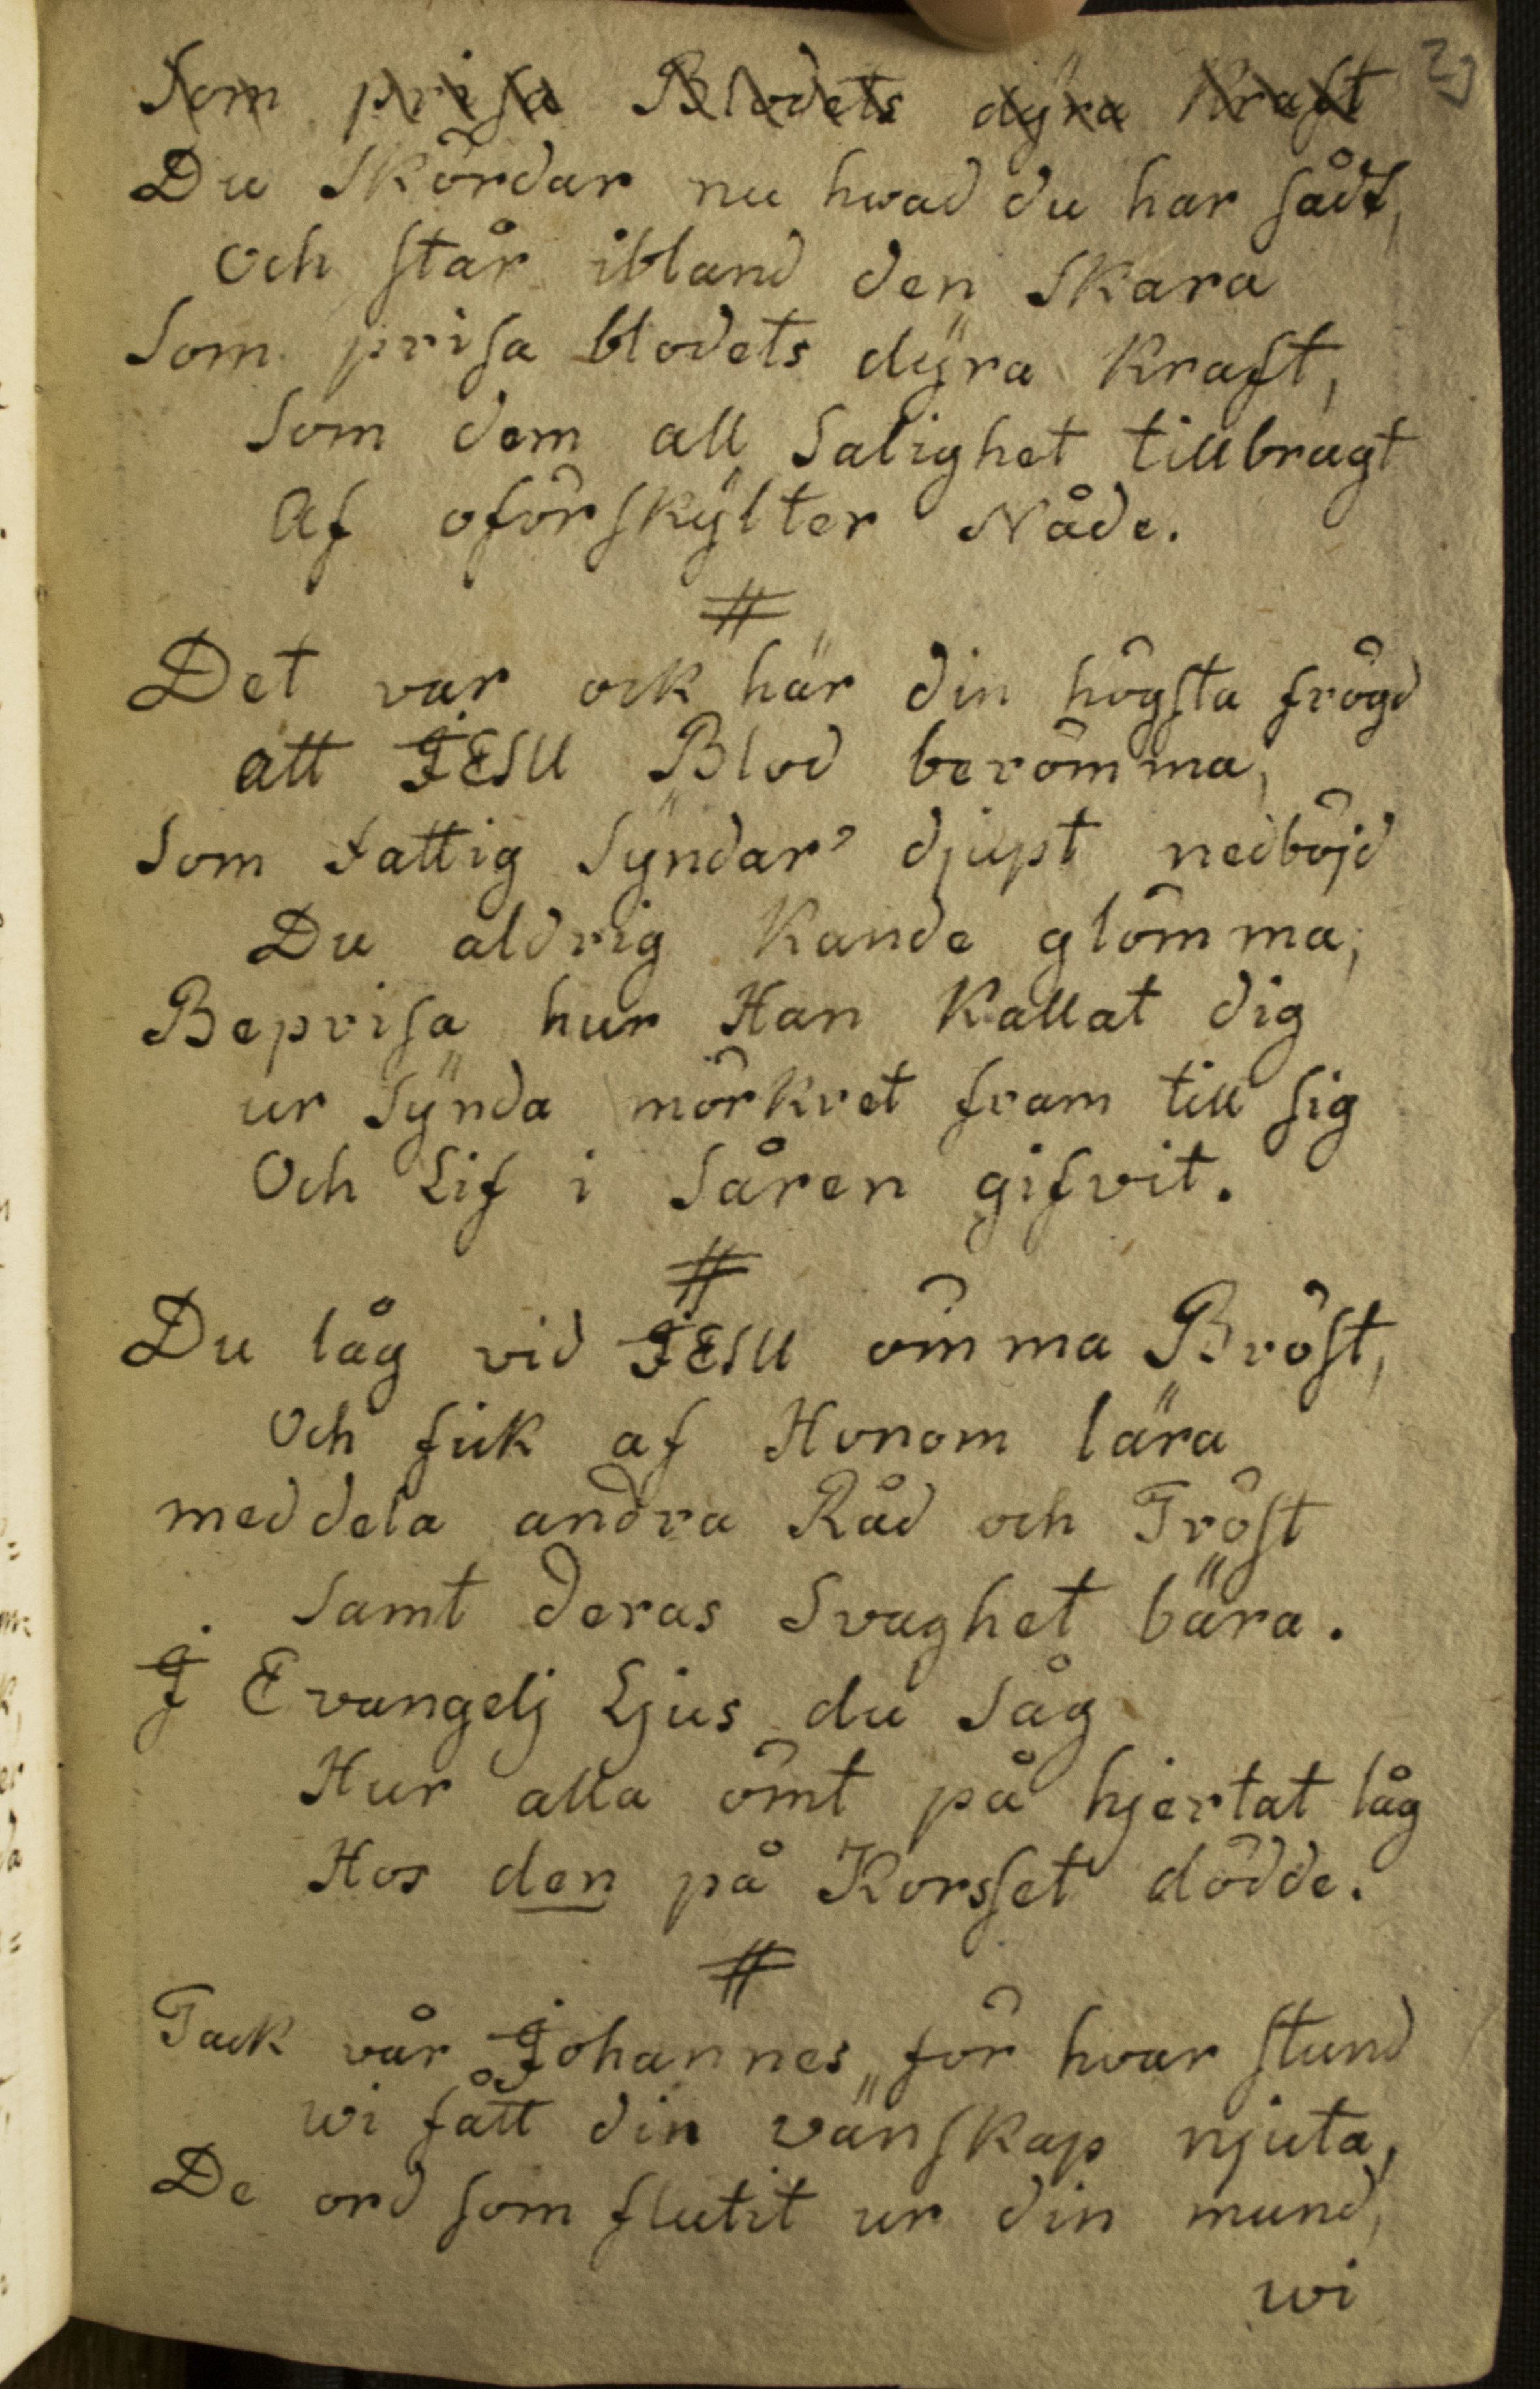 29
Som prisa Blodets dÿra Kraft
Du Skördar nu hwad du har sådt,
Och står ibland den Skara
Som prisa blodets dÿra Kraft,
Som dem all Salighet tillbragt
Af oförskÿlter Nåde.
#
Det var ock här din högsta frögd
att JESU Blod berömma,
Som fattig Sÿndar' djupt nedböjd
Du aldrig Kande glömma;
Beprisa hur Han Kallat dig
ur Sÿnda mörkret fram till sig
Och Lif i Såren gifvit.
#
Du låg vid JESU ömma Bröst,
Och fick af Honom lära
meddela andra Råd och Tröst
Samt deras Svaghet bära.
I Evangelj Ljus du Såg
Hur alla ömt på hjertat låg
Hos den på Korsset dödde.
#
Tack vår Johannes, för hvar stund
wi fått din vänskap njuta,
De ord som flutit ur din mund,
wi